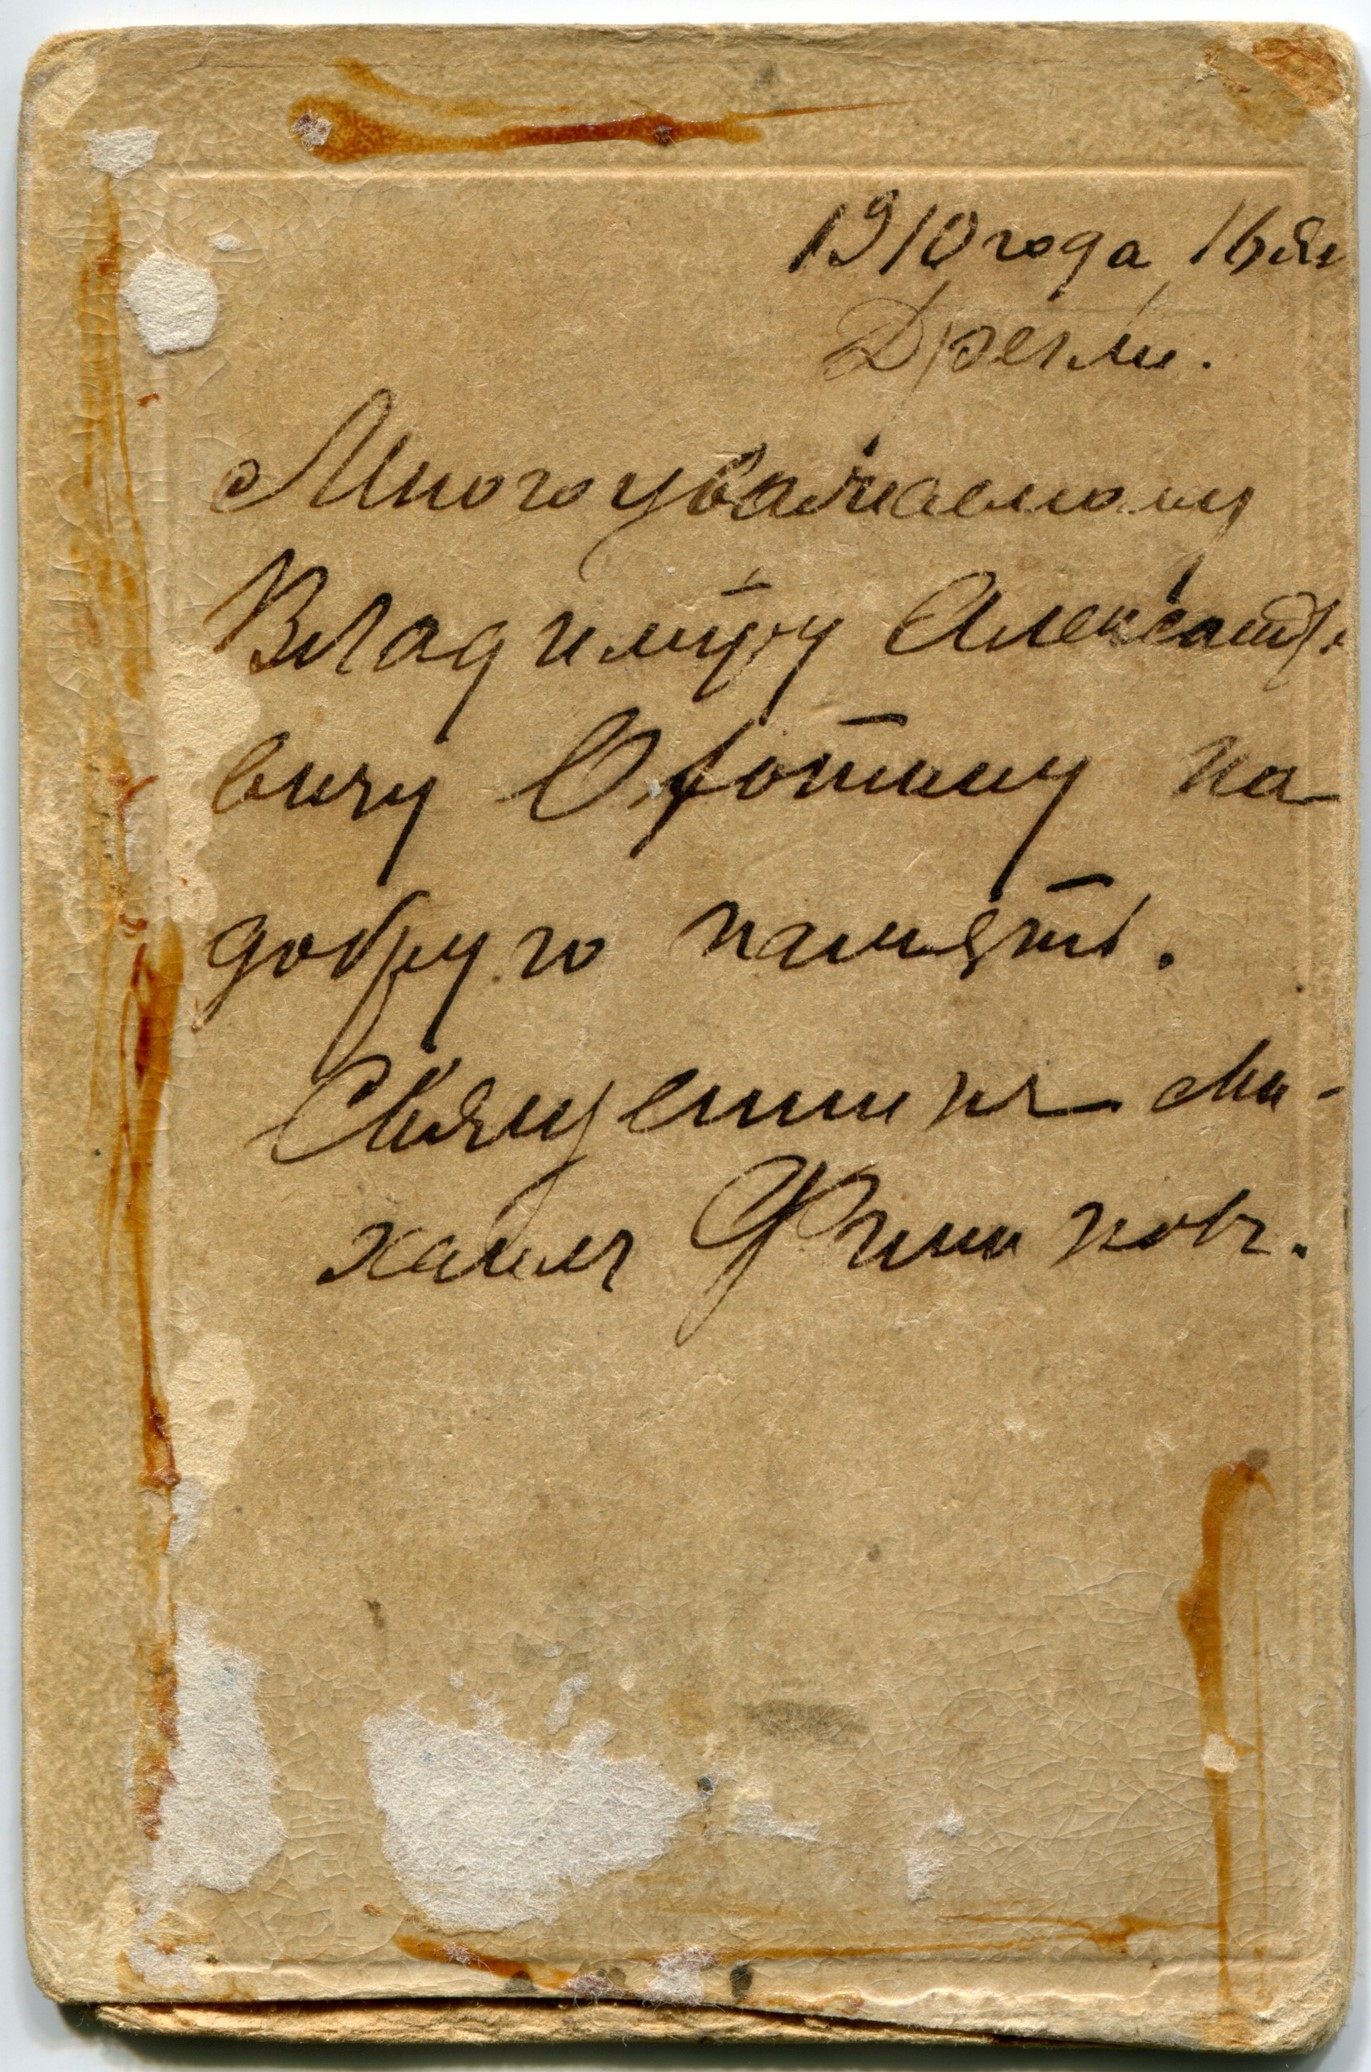 1910 года 16 ян
Дрегли.
Многоуважаемому
Владимиру Александро
вичу Охотину на
добрую память.
Священникъ Ми-
хаилъ Финиковъ.